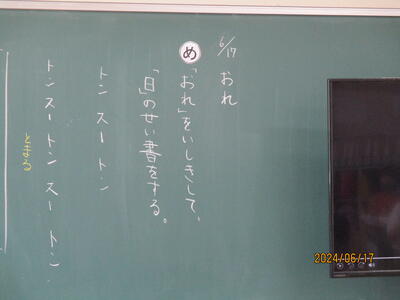 6/17 おれ
め 「おれ」をいしきして、
「日」のせい書をする。
トン スー トン
トン スー トン スー トン
とまる
2024/06/17